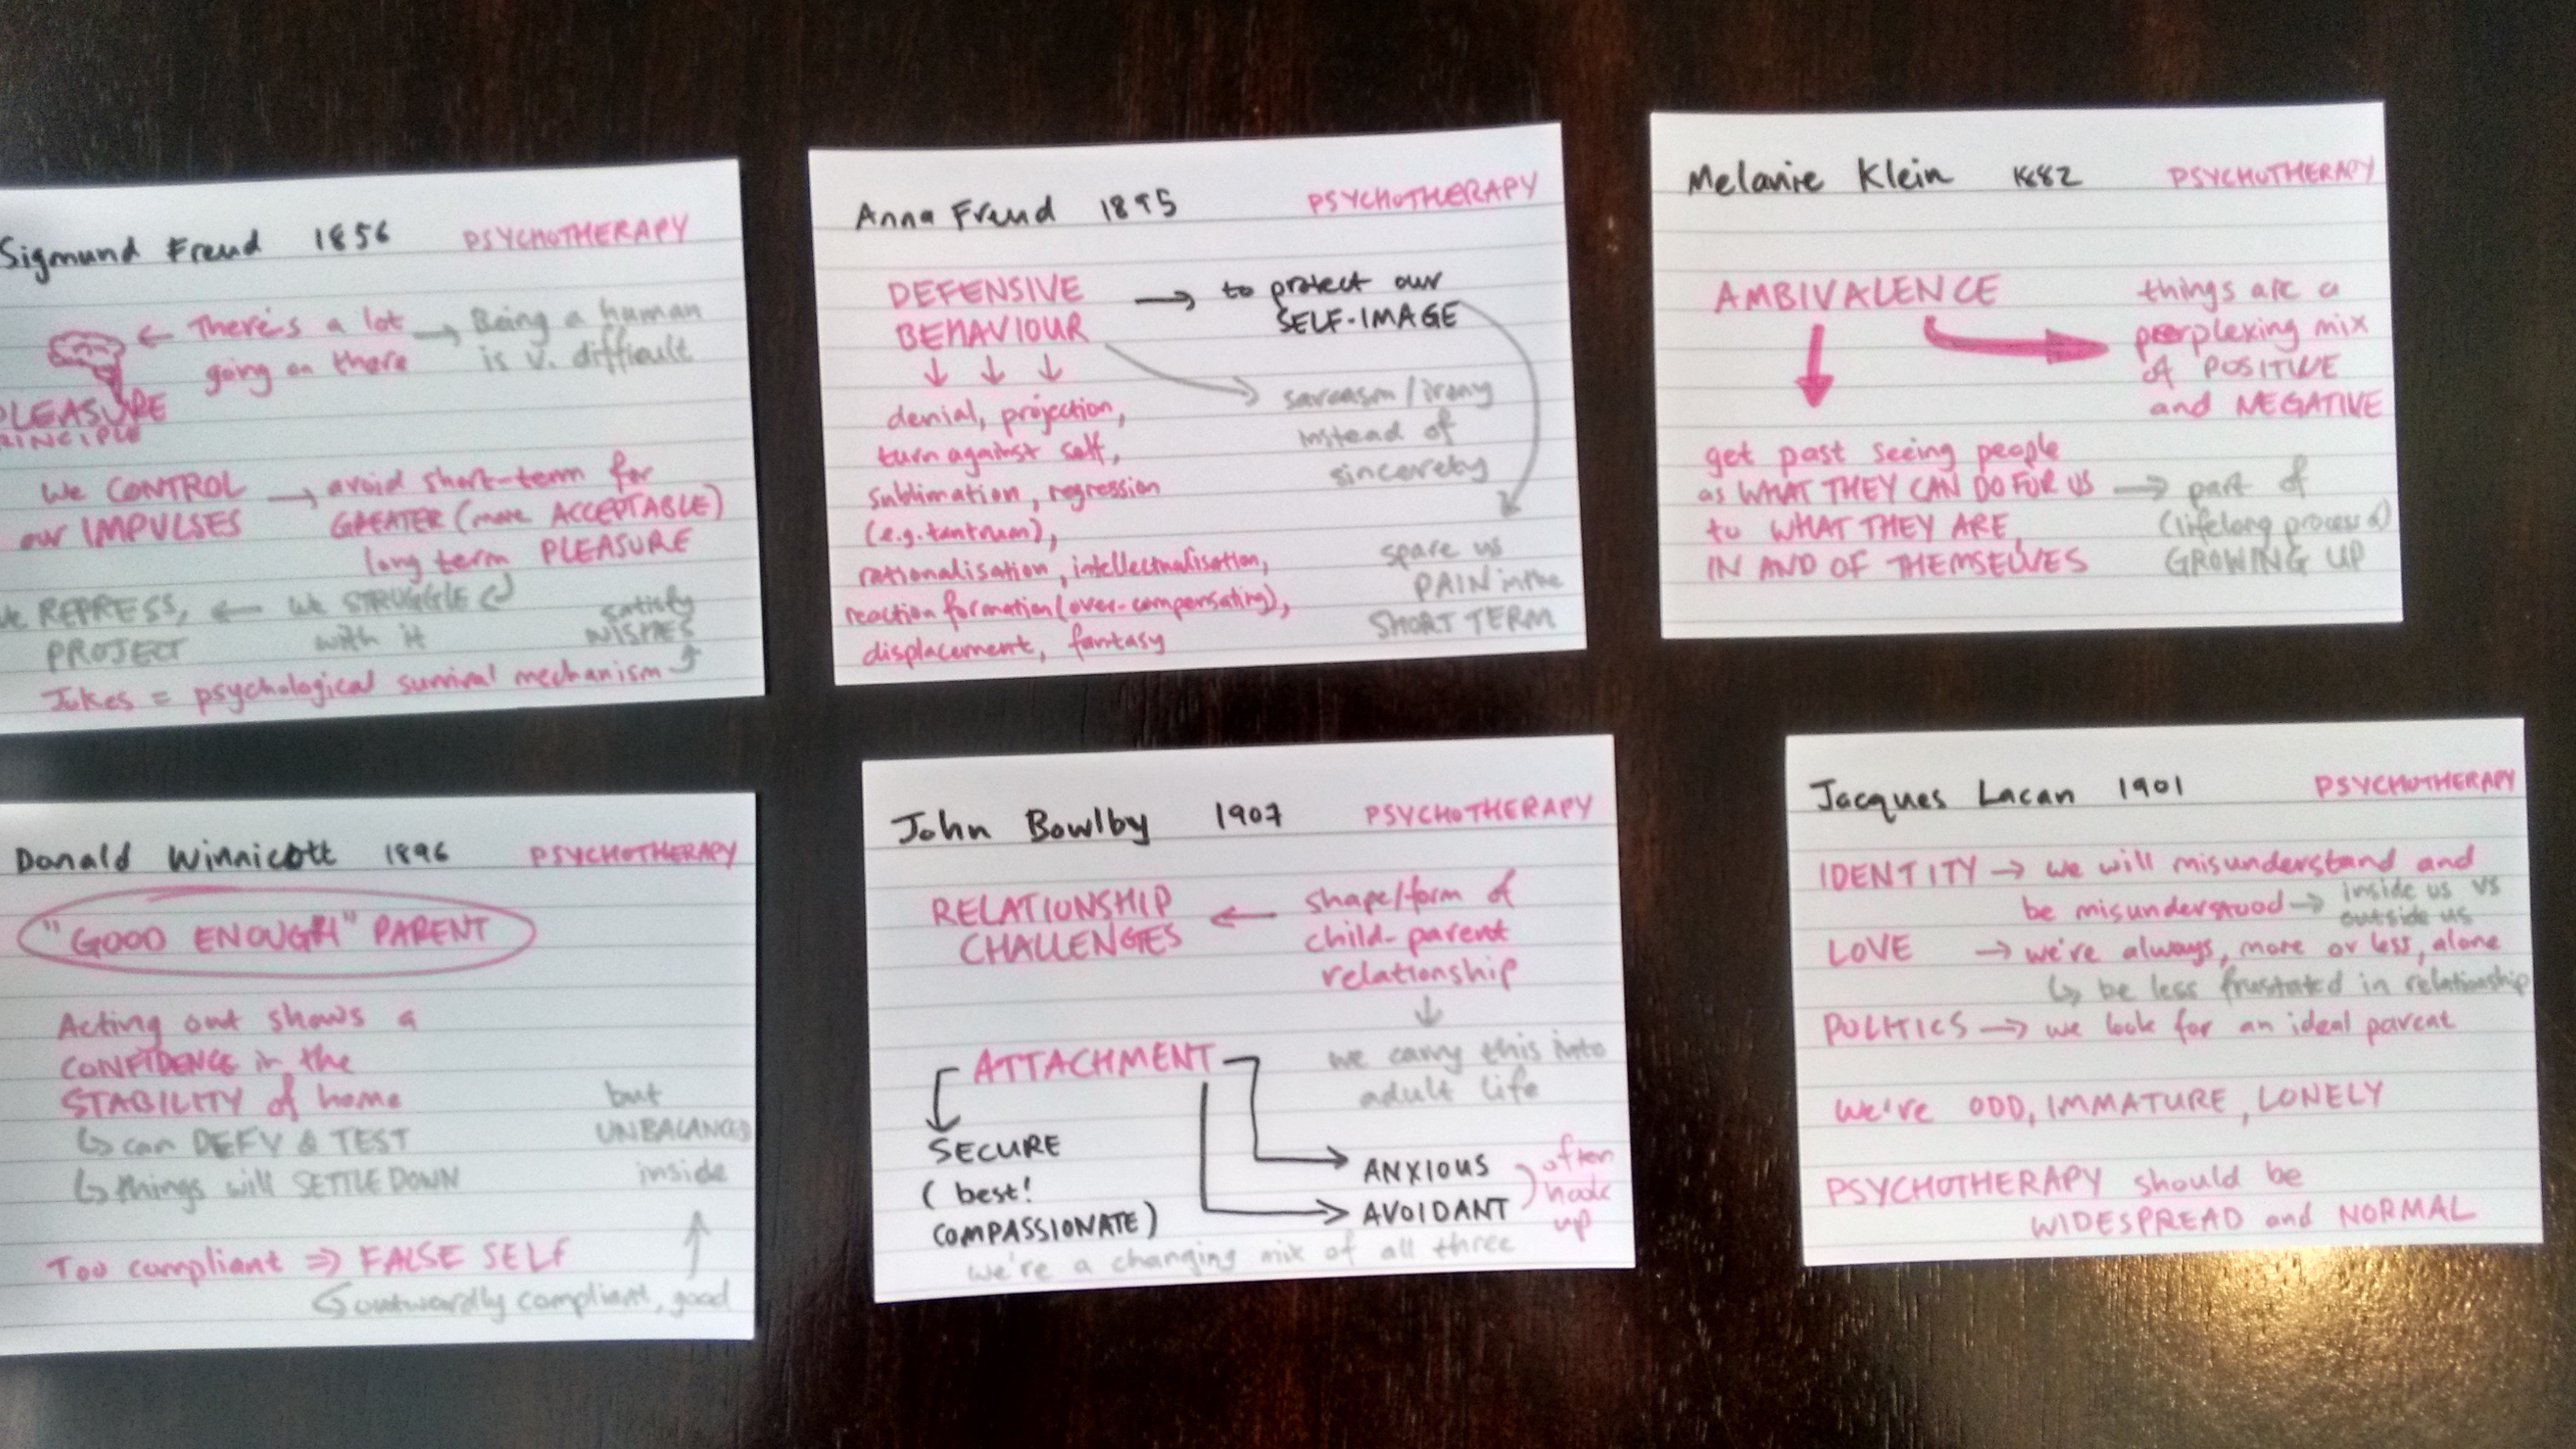 Sigmund Freud 1856 PSYCHOTHERAPY
← There's a lot → Being a human
going on there is v. difficult
PLEASURE
PRINCIPLE
We CONTROL → avoid short-term for
our IMPULSES GREATER (more ACCEPTABLE)
long term PLEASURE
We REPRESS, ← We STRUGGLE
PROJECT with it
satisfy
WISHES
Jokes = psychological survival mechanism
Anna Freud 1895 PSYCHOTHERAPY
DEFENSIVE → to protect our
BEHAVIOUR SELF-IMAGE
↓ ↓ ↓
denial, projection,
turn against self,
sublimation, regression
(e.g. tantrum),
rationalisation, intellectualisation,
reaction formation (over-compensating),
displacement, fantasy
sarcasm/irony
instead of
sincerety
spare us
PAIN in the
SHORT TERM
Melanie Klein 1882 PSYCHOTHERAPY
AMBIVALENCE
things are a
perplexing mix
of POSITIVE
and NEGATIVE
get past seeing people
as WHAT THEY CAN DO FOR US
to WHAT THEY ARE,
IN AND OF THEMSELVES
→ part of
(lifelong process of)
GROWING UP
Donald Winnicott 1896 PSYCHOTHERAPY
"GOOD ENOUGH" PARENT
Acting out shows a
CONFIDENCE in the
STABILITY of home
↳ can DEFY & TEST
↳ things will SETTLE DOWN
but
UNBALANCED
inside
Too compliant ⇒ FALSE SELF
outwardly compliant, good
John Bowlby 1907 PSYCHOTHERAPY
RELATIONSHIP ← shape/form of
CHALLENGES child-parent
relationship
↓
we carry this into
adult life
ATTACHMENT
SECURE
(best!
COMPASSIONATE)
ANXIOUS
AVOIDANT
often
hook
up
we're a changing mix of all three
Jacques Lacan 1901 PSYCHOTHERAPY
IDENTITY → we will misunderstand and
be misunderstood → inside us vs
outside us
LOVE → we're always, more or less, alone
↳ be less frustated in relationship
POLITICS → we look for an ideal parent
We're ODD, IMMATURE, LONELY
PSYCHOTHERAPY should be
WIDESPREAD and NORMAL